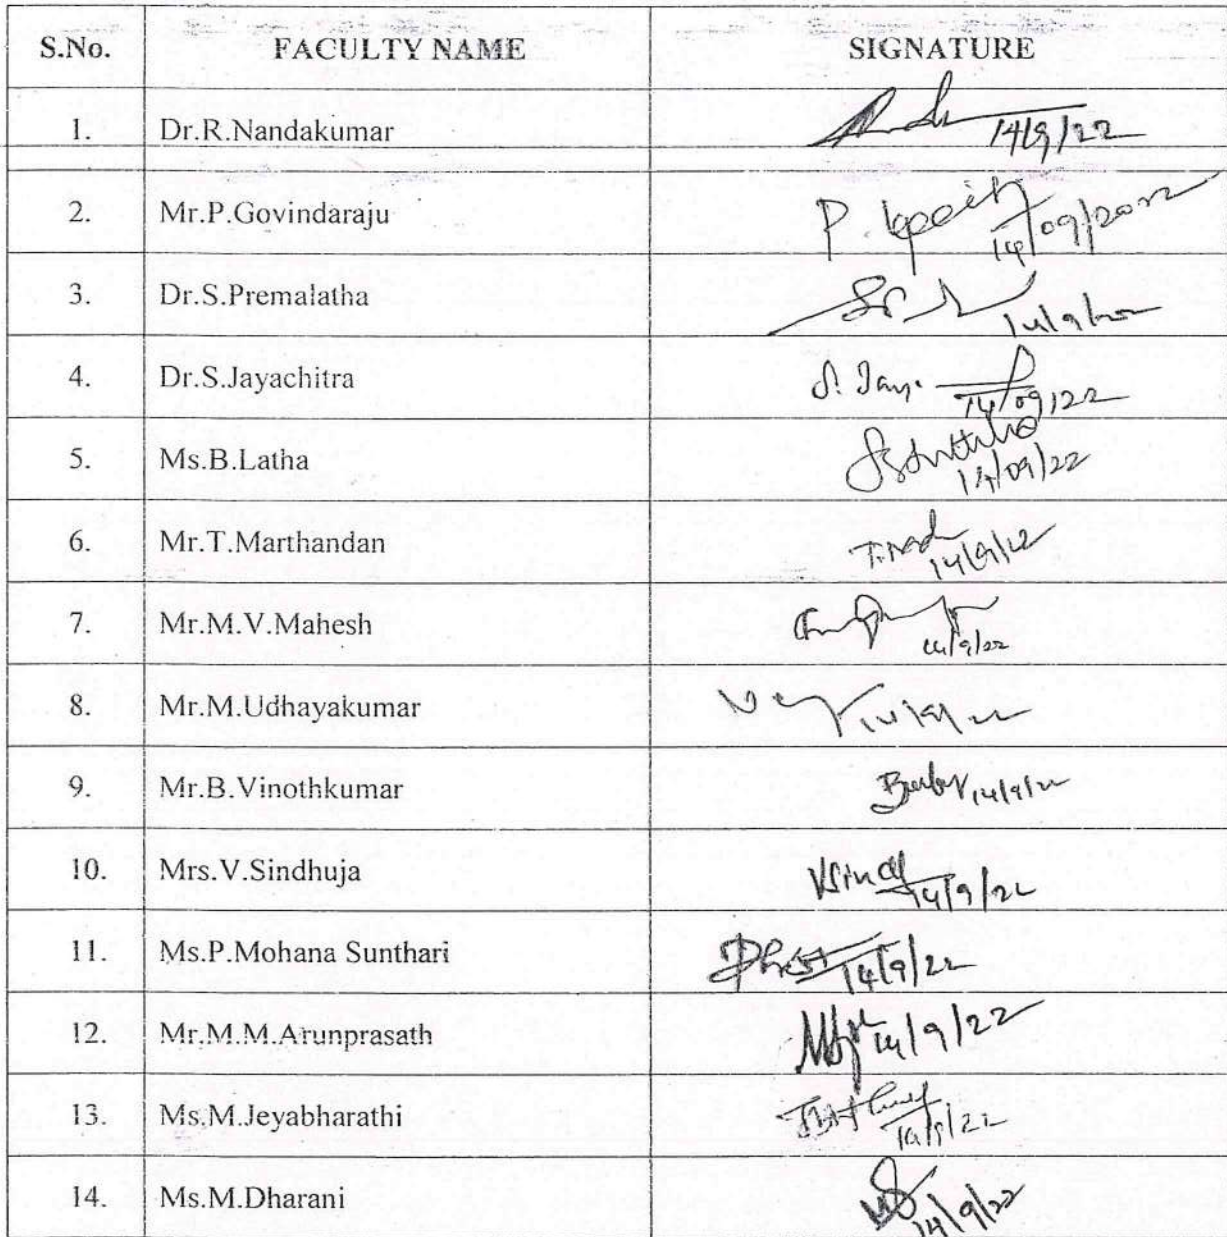 S.No. FACULTY NAME SIGNATURE
1. Dr.R.Nandakumar 14/9/22
2. Mr.P.Govindaraju P. 14/09/2022
3. Dr.S.Premalatha 14/9/2022
4. Dr.S.Jayachitra S. Jay. 14/09/22
5. Ms.B.Latha 14/09/22
6. Mr.T.Marthandan 14/9/22
7. Mr.M.V.Mahesh 14/9/22
8. Mr.M.Udhayakumar
9. Mr.B.Vinothkumar 14/9/22
10. Mrs.V.Sindhuja 14/9/22
11. Ms.P.Mohana Sunthari 14/9/22
12. Mr.M.M.Arunprasath 14/9/22
13. Ms.M.Jeyabharathi 14/9/22
14. Ms.M.Dharani 14/9/22